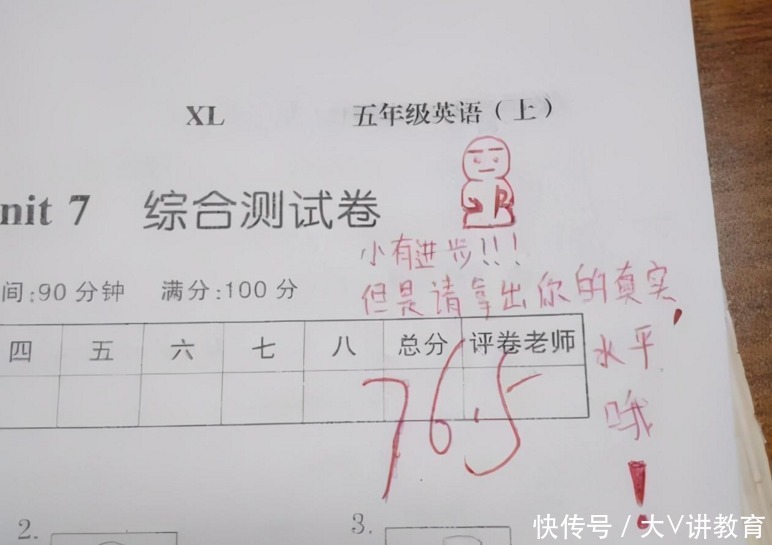 XL 五年级英语（上）
nit 7 综合测试卷
小有进步!!!
间:90分钟 满分:100分
但是请拿出你的真实
水平
哦!
四 五 六 七 八 总分 评卷老师
76.5
2. 3.
快传号 / 大V讲教育